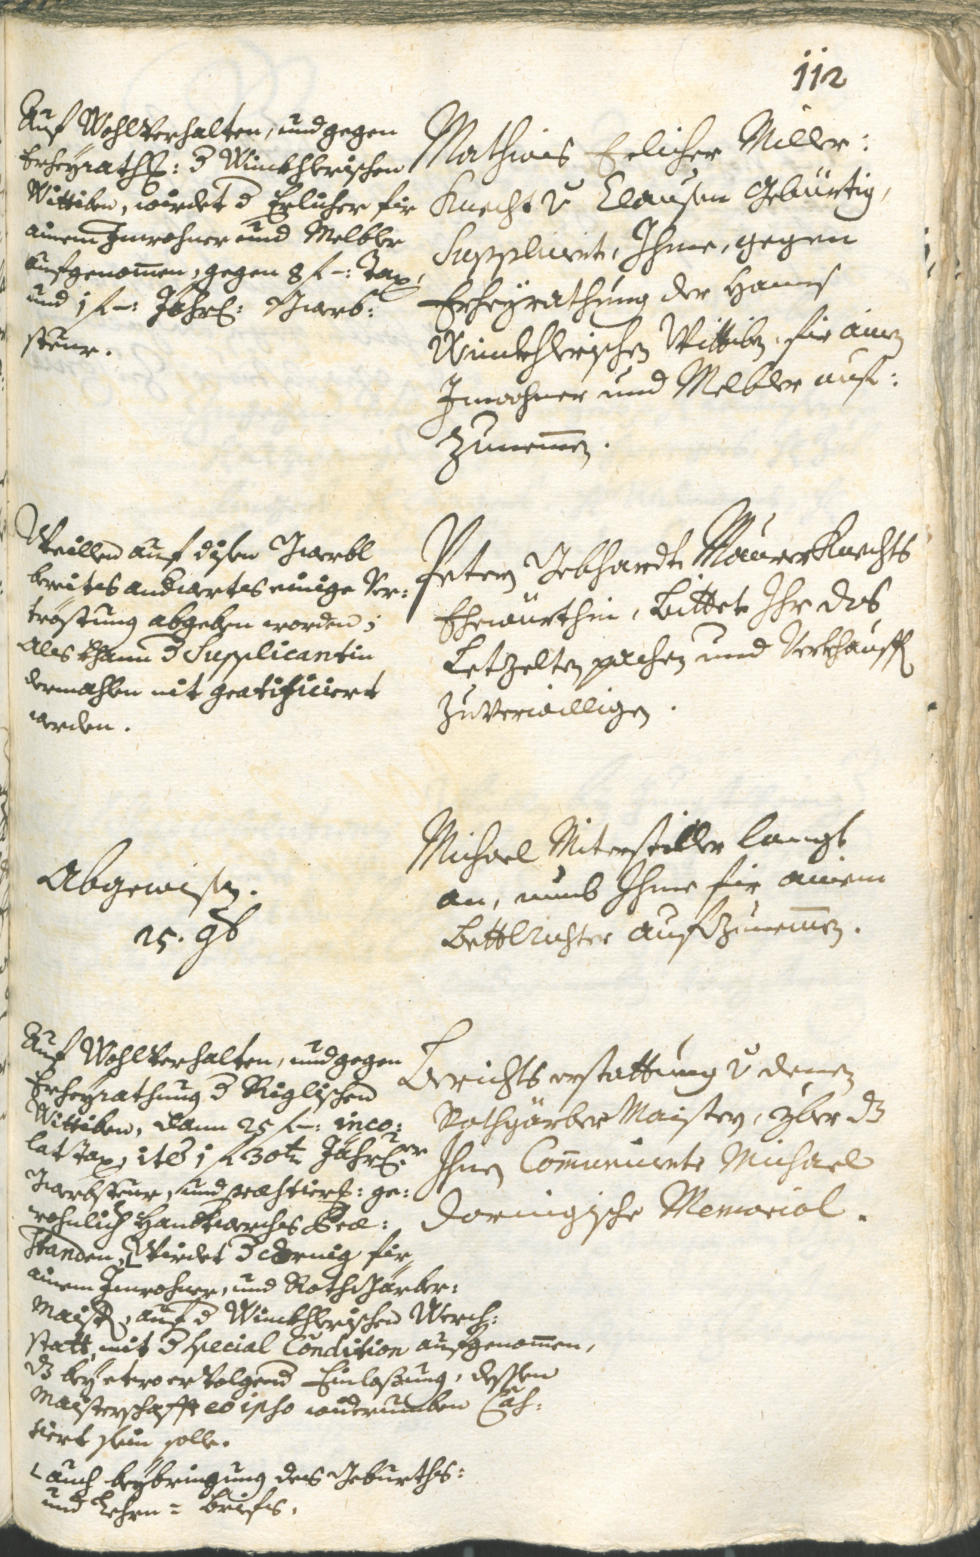 112
Auf Wohlverhalten, und gegen
Erheyrath: d Winkhlerischen
Wittiben, wirdet d Erlicher für
ainem Inwohner und Melbler
aufgenom̄en, gegen 8 f –: Tax,
und 1 f –: Jährl: Gwerb:
steur.
Mathias Erlicher Miller:
Knecht v Clausen gebürtig,
Supplicirt, Ihme, gegen
Erheyrathung der Hanns
Winkhlerischen Wittiben, für ainen
Inwohner und Melbler auf:
zunem̄en.
Weillen auf disen Gwerbl
bereits andwerts einige Ver:
tröstung abgeben worden;
Als khann d Supplicantin
dermahlen nit gratificiert
werden.
Peter Gebhardts Maurer Knechts
Ehewürthin, bittet Ihr das
Letzelten pachen und Verkhauff
zuverwilligen.
Abgewisen.
25. gb
Michael Miterstiller langt
an, umb Ihme für ainem
Bettlrichter aufzunem̄en.
Auf Wohlverhalten, und gegen
Erheyrathung d Riglischen
Wittiben, dann 25 f –: inco:
lat Tax, ite 1 f 30 Jährl:
Gwerbsteur, und praestiert: ge:
wohnlich Handtwerchs Prae:
standen, wirdet d dornig für
ainem Inwohner, und Rothgärber:
Maister, auf d Winkhlerischen Werch:
statt, mit d special Condition aufgenom̄en,
dz bey etwo ervolgend Einlassung, dessen
Maisterschafft eo ipso widerumben Cas:
siert sein solle.
auch beybringung des Geburths:
und Lehrn = briefs.
Berichts erstattung v denen
Rothgärber Maistern, yber dz
Ihnen Com̄unicirte Michael
Dorningische Memorial.